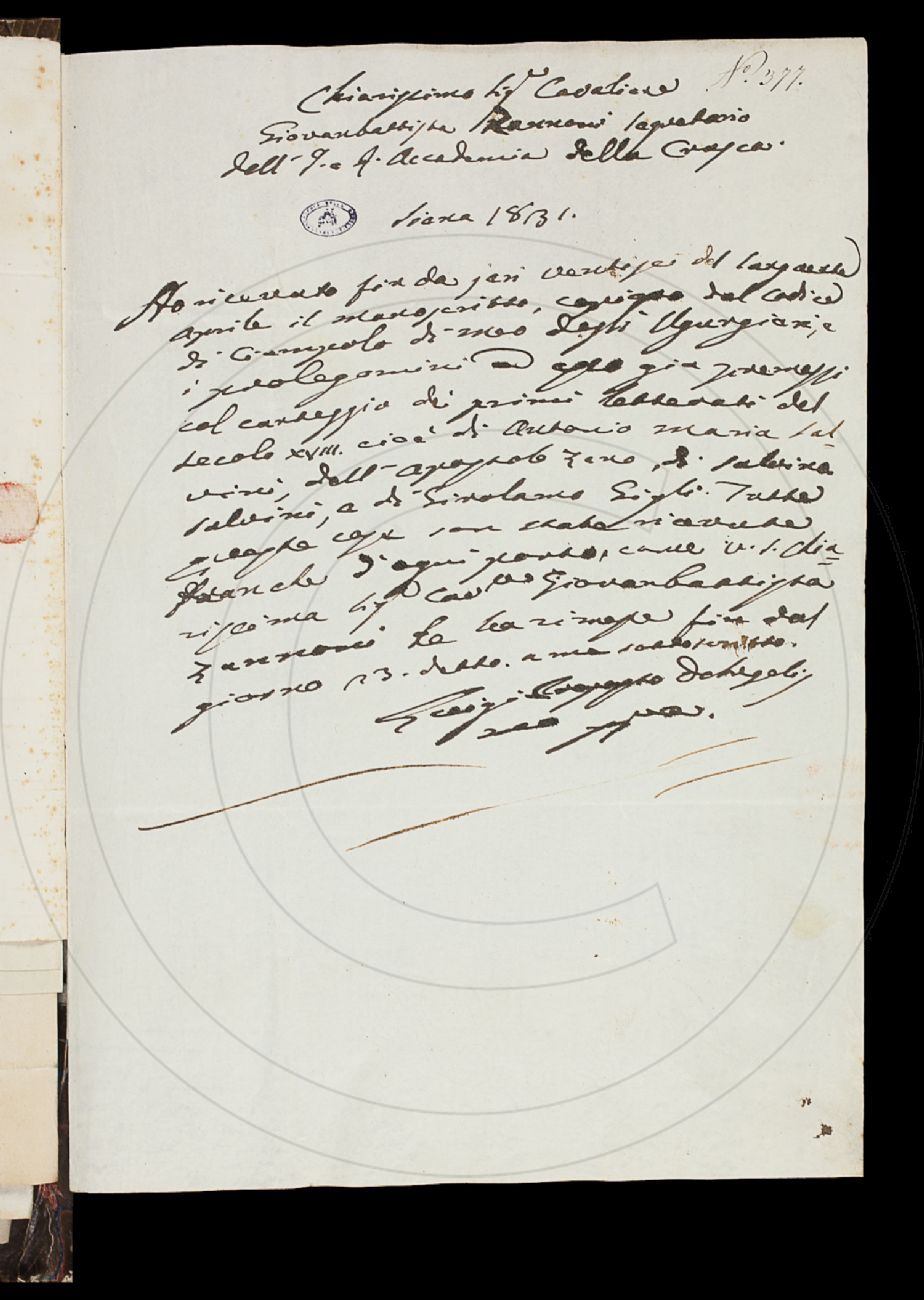 N.° 377.
Chiarissimo Sig.re Cavaliere
Giovanbattista Zannoni Segretario
dell' I. e R. Accademia della Crusca.
Siena 1831.
Ho ricevuto fin da jeri ventisei del
Aprile il manoscritto, copiato dal Codice
di Ciampolo di Meo degli Ugurgieri, e
i prolegomini ad esso già premessi
col carteggio dei primi letterati del
secolo XVIII. cioè di Antonio Maria Sal-
vini, dell' Apostolo Zeno, di Salvino
Salvini, e di Girolamo Gigli. Tutte
queste cose son state ricevute
franche d'ogni porto, come V. S. Chia=
rissima Sig.re Cav.re Giovanbattista
Zannoni le trasmesse fin dal
giorno 23. detto. a me sottoscritto.
Luigi De Angelis